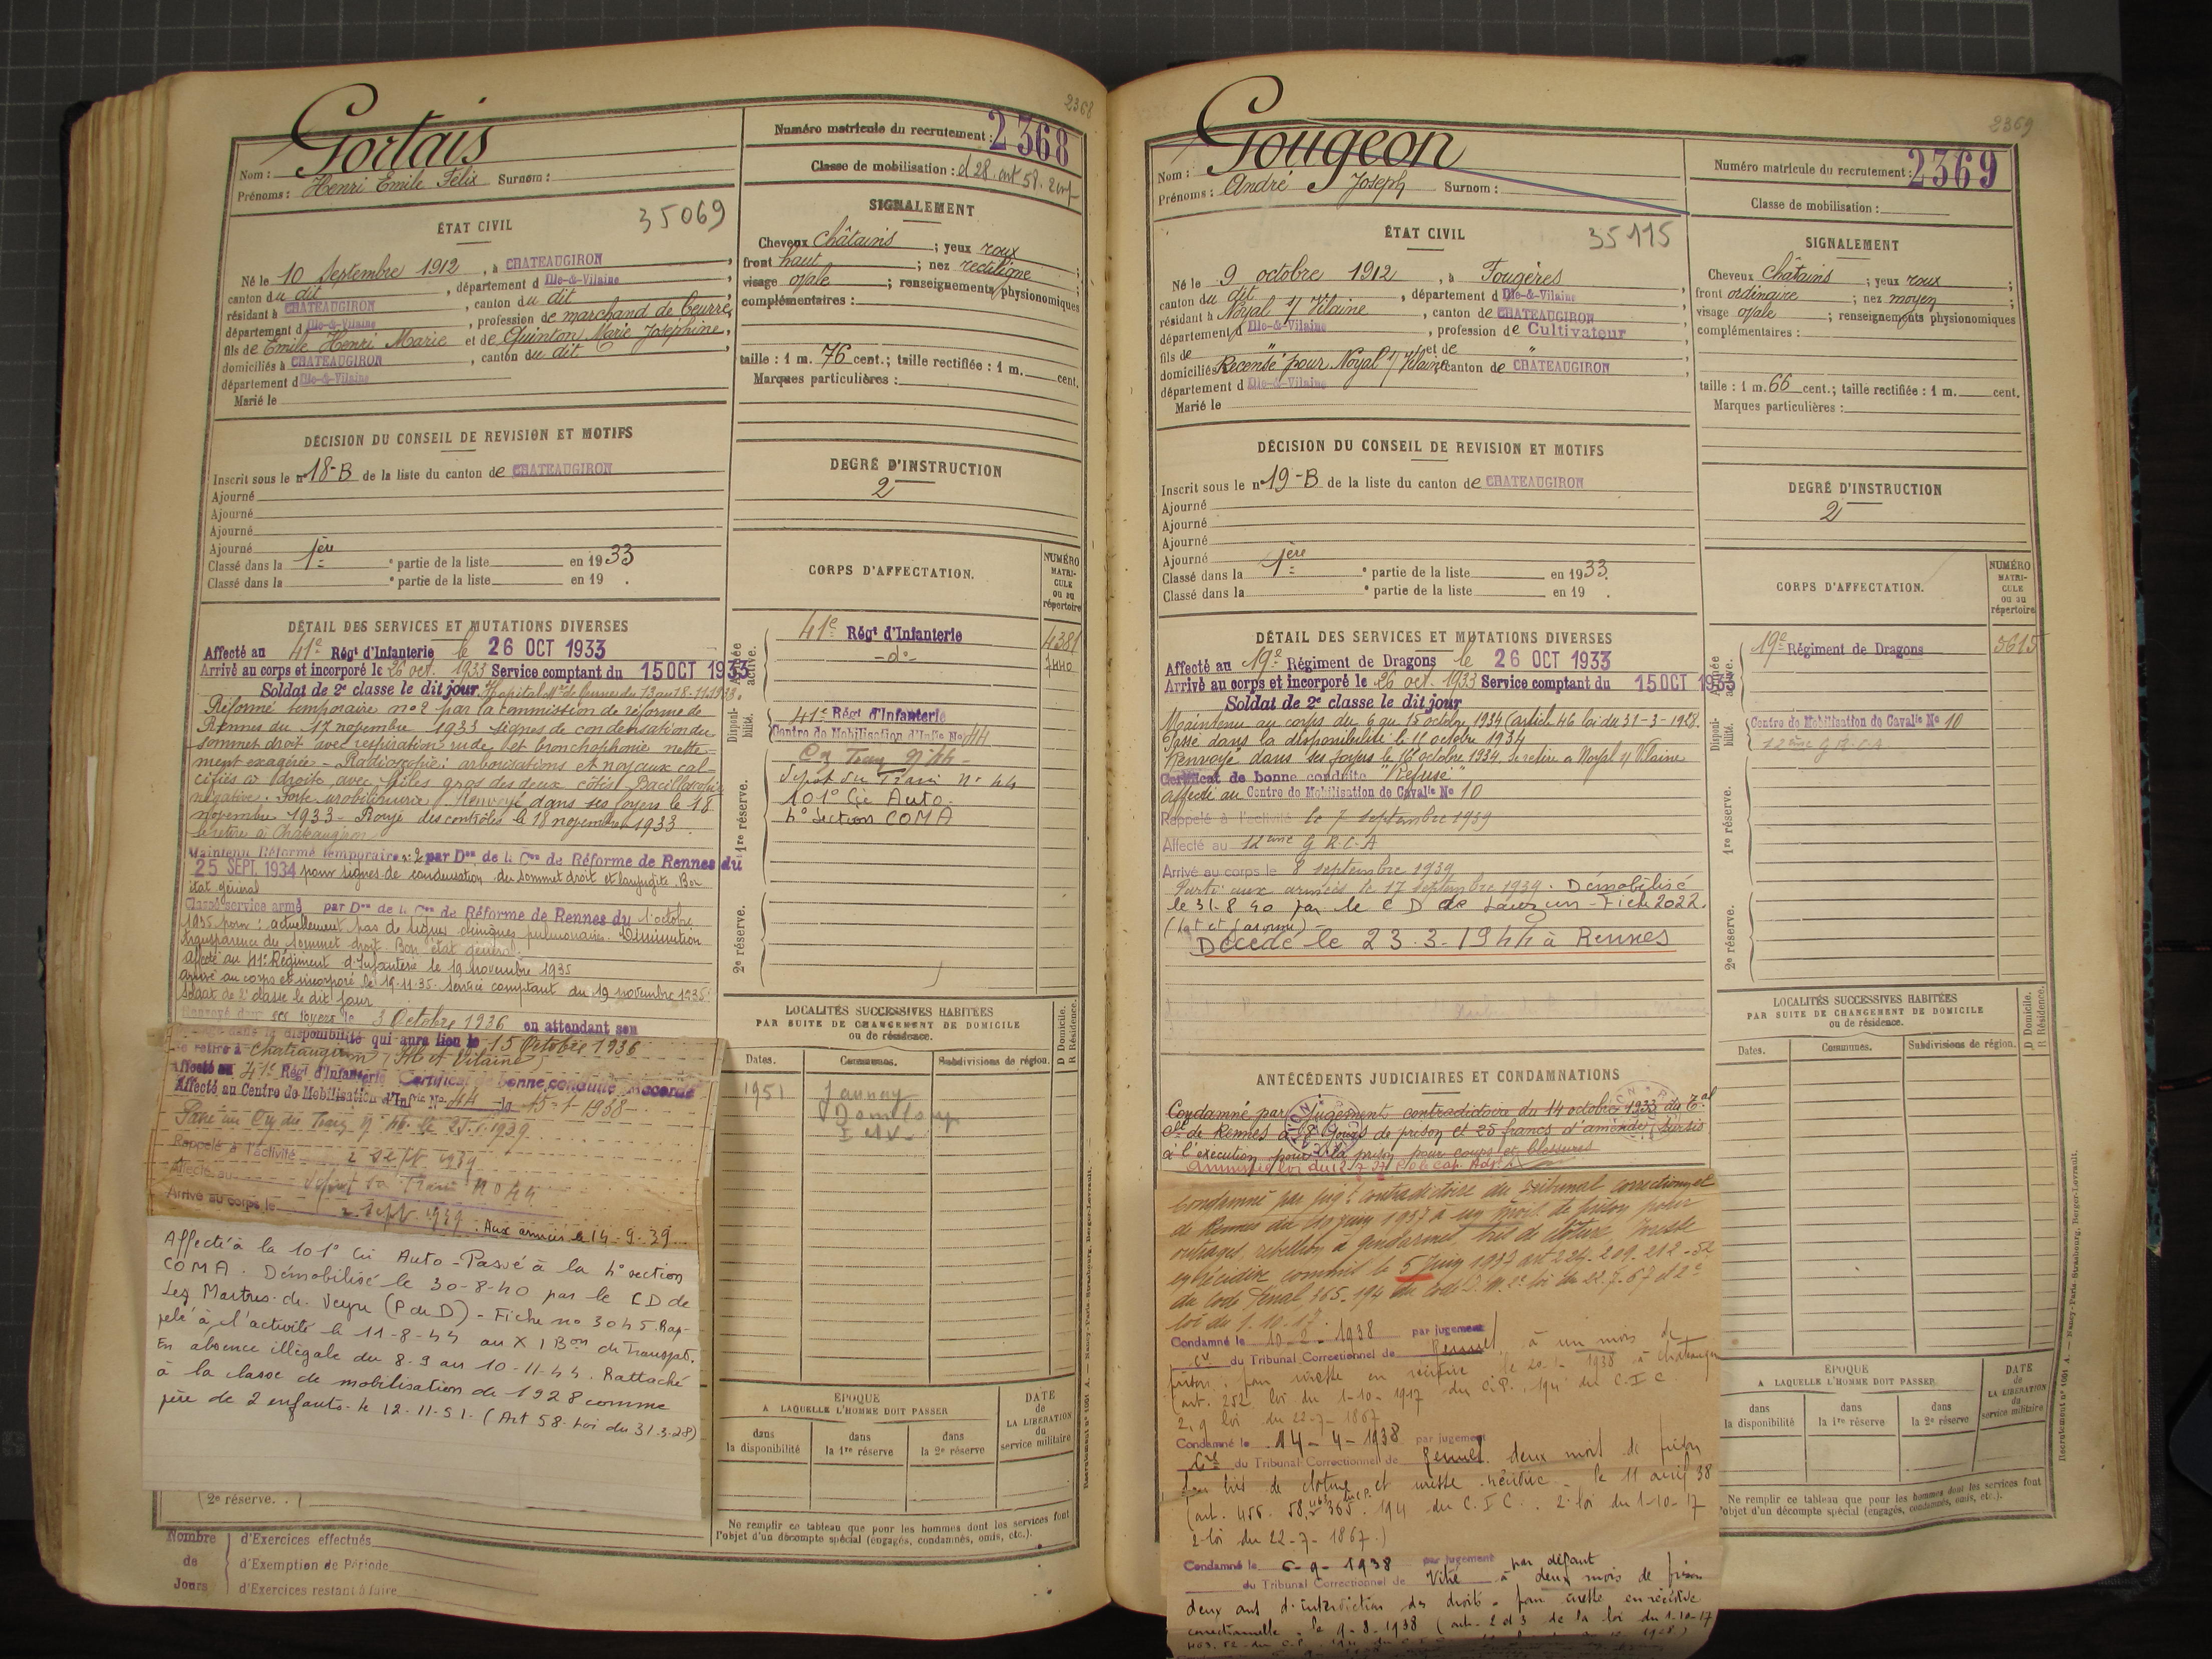 2368
Gortais
Nom :
Prénoms : Henri Emile Félix Surnom :
Numéro matricule du recrutement : 2368
Classe de mobilisation : d 28. art 58. 2 enf
ÉTAT CIVIL
35069
Né le 10 Septembre 1912, à CHATEAUGIRON
canton du dit, département d Ille-&-Vilaine
résidant à CHATEAUGIRON, canton du dit
département d Ille-&-Vilaine, profession de marchand de beurre,
fils de Emile Henri Marie et de Quinton Marie Joséphine,
domiciliés à CHATEAUGIRON, canton du dit
département d Ille-&-Vilaine
Marié le
SIGNALEMENT
Cheveux châtains ; yeux roux ;
front haut ; nez rectiligne ;
visage ovale ; renseignements physionomiques
complémentaires :
taille : 1 m. 76 cent.; taille rectifiée : 1 m. cent.
Marques particulières :
DÉCISION DU CONSEIL DE REVISION ET MOTIFS
Inscrit sous le n° 18-B de la liste du canton de CHATEAUGIRON
Ajourné
Ajourné
Ajourné
Ajourné
Classé dans la 1ère partie de la liste en 1933
Classé dans la e partie de la liste en 19 .
DEGRÉ D'INSTRUCTION
2
CORPS D'AFFECTATION.
NUMÉRO MATRICULE ou au répertoire
Armée active.
41e Régt d'Infanterie 4381
-do- 7440
Disponibilité.
41e Régt d'Infanterie
Centre de Mobilisation d'Infie No 44
Dépôt du Train No 44
101e Cie Auto.
4e Section COMA
1re réserve.
2e réserve.
DÉTAIL DES SERVICES ET MUTATIONS DIVERSES
Affecté au 41e Régt d'Infanterie le 26 OCT 1933
Arrivé au corps et incorporé le 26 oct. 1933 Service comptant du 15 OCT 1933
Soldat de 2e classe le dit jour. Hopital Mre de Rennes du 13 au 18-11-1933.
Réformé temporaire no 2 par la commission de réforme de
Rennes du 17 novembre 1933 signes de condensation du
sommet droit avec respiration rude et bronchophonie nette-
ment exagérée - Radioscopie : arborisations et noyaux cal-
cifiés à droite, avec hiles gros des deux côtés. Bacilloscopie
négative. Forte urobilinurie. Renvoyé dans ses foyers le 18
novembre 1933 - Rayé des contrôles le 18 novembre 1933.
Se retire à Chateaugiron
Maintenu Réformé temporaire n° 2 par Don de la Con de Réforme de Rennes du
25 SEPT. 1934 pour signes de condensation du sommet droit et laryngite. Bon
état général
Classé service armé par Don de la Con de Réforme de Rennes du 1 octobre
1935 pour : actuellement pas de signes cliniques pulmonaires. Diminution
transparence du sommet droit. Bon état général.
Affecté au 41e Régiment d'Infanterie le 19 novembre 1935
Arrivé au corps et incorporé le 19.11.35. Service comptant du 19 novembre 1935.
Soldat de 2e classe le dit jour
Renvoyé dans ses foyers le 3 Octobre 1936 en attendant son
passage dans la disponibilité qui aura lieu le 15 Octobre 1936
Se retire à Chateaugiron (Ille et Vilaine)
Affecté au 41e Régt d'Infanterie Certificat de bonne conduite Accordé
Affecté au Centre de Mobilisation d'Infrie No 44 le 15-1-1938
Rappelé à l'activité 2 Sept 1939
Affecté au Dépôt du Train No 44
Arrivé au corps le 2 Sept. 1939. Aux armées le 14-9-39.
Affecté à la 101e Cie Auto - Passé à la 4e section
COMA. Démobilisé le 30-8-40 par le CD de
Les Martres de Veyre (P de D) - Fiche no 3045. Rap-
pelé à l'activité le 11-8-44 au X I Bon de Transpt.
En absence illégale du 8.9 au 10-11-44. Rattaché
à la classe de mobilisation de 1928 comme
père de 2 enfants. le 12-11-51. (Art 58. Loi du 31.3.28)
(2e réserve. .
Nombre de Jours
d'Exercices effectués
d'Exemption de Période
d'Exercices restant à faire
LOCALITÉS SUCCESSIVES HABITÉES
PAR SUITE DE CHANGEMENT DE DOMICILE
ou de résidence.
Dates. Communes. Subdivisions de région. D Domicile. R Résidence.
1951 Jannay
I et V.
ÉPOQUE
A LAQUELLE L'HOMME DOIT PASSER
dans la disponibilité
dans la 1re réserve
dans la 2e réserve
DATE de LA LIBÉRATION du service militaire
Ne remplir ce tableau que pour les hommes dont les services font
l'objet d'un décompte spécial (engagés, condamnés, omis, etc.).
Recrutement n° 1001 A. — Nancy-Paris-Strasbourg, Berger-Levrault.
2369
Gougeon
Nom :
Prénoms : André Joseph Surnom :
Numéro matricule du recrutement : 2369
Classe de mobilisation :
ÉTAT CIVIL
35115
Né le 9 octobre 1912, à Fougères
canton du dit, département d Ille-&-Vilaine
résidant à Noyal s/ Vilaine, canton de CHATEAUGIRON
département d Ille-&-Vilaine, profession de Cultivateur
fils de " et de
domiciliés Recensé pour Noyal s/ Vilaine canton de CHATEAUGIRON
département d Ille-&-Vilaine
Marié le
SIGNALEMENT
Cheveux châtains ; yeux roux ;
front ordinaire ; nez moyen ;
visage ovale ; renseignements physionomiques
complémentaires :
taille : 1 m. 66 cent.; taille rectifiée : 1 m. cent.
Marques particulières :
DÉCISION DU CONSEIL DE REVISION ET MOTIFS
Inscrit sous le n° 19-B de la liste du canton de CHATEAUGIRON
Ajourné
Ajourné
Ajourné
Ajourné
Classé dans la 1ère partie de la liste en 1933.
Classé dans la e partie de la liste en 19 .
DEGRÉ D'INSTRUCTION
2
CORPS D'AFFECTATION.
NUMÉRO MATRICULE ou au répertoire
Armée active.
19e Régiment de Dragons 3615
Disponibilité.
Centre de Mobilisation de Cavalie No 10
12ème G R.C.A
1re réserve.
2e réserve.
DÉTAIL DES SERVICES ET MUTATIONS DIVERSES
Affecté au 19e Régiment de Dragons le 26 OCT 1933
Arrivé au corps et incorporé le 26 oct. 1933 Service comptant du 15 OCT 1933
Soldat de 2e classe le dit jour
Maintenu au corps du 6 au 15 octobre 1934 (article 46 loi du 31-3-1928.
Passé dans la disponibilité le 11 octobre 1934
Renvoyé dans ses foyers le 16 octobre 1934. Se retire à Noyal s/ Vilaine
Certificat de bonne conduite "Refusé"
affecté au Centre de Mobilisation de Cavalie No 10
Rappelé à l'activité le 7 septembre 1939
Affecté au 12ème G R.C.A
Arrivé au corps le 8 septembre 1939
Parti aux armées le 17 septembre 1939. Démobilisé
le 31-8 40 par le C D de Lauzun - Fiche 2022.
(Lot et Garonne)
Décédé le 23.3.1944 à Rennes
ANTÉCÉDENTS JUDICIAIRES ET CONDAMNATIONS
Condamné par jugement contradictoire du 14 octobre 1933 du Tal
Cel de Rennes à 8 jours de prison et 25 francs d'amende, sursis
à l'exécution pour la prison pour coups et blessures
Amnistié loi du 12-7-37
Condamné par jugt contradictoire du tribunal correctionnel
de Rennes du 10 juin 1937 à un mois de prison pour
outrages, rebellion à gendarmes, bris de clôture, ivresse
en récidive, commis le 5 juin 1937 art 224. 209. 212-52
du Code Pénal, 365-194 du Code I. C. loi du 22.7.67 et 2e
loi du 1.10.17.
Condamné le 10-2-1938 par jugement
Cre du Tribunal Correctionnel de Rennes, à un mois de
prison, pour ivresse en récidive le 20-1-1938 à Chateaugiron
(art. 252 loi du 1-10-1917 du C.P. 194 du C.I.C.
2,9 loi du 22-7-1867
Condamné le 14-4-1938 par jugement
Cre du Tribunal Correctionnel de Rennes deux mois de prison
pour bris de clôture et ivresse récidive - le 11 avril 38
(art. 456. 58, 463 du C.P. 365. 194 du C.I.C. 2 loi du 1-10-17
2 loi du 22-7-1867.)
Condamné le 6-9-1938 par jugement par défaut
du Tribunal Correctionnel de Vitré à deux mois de prison
deux ans d'interdiction des droits. pour ivresse en récidive
correctionnelle - le 9-8-1938 (art. 2 et 3 de la loi du 1-10-17
LOCALITÉS SUCCESSIVES HABITÉES
PAR SUITE DE CHANGEMENT DE DOMICILE
ou de résidence.
Dates. Communes. Subdivisions de région. D Domicile. R Résidence.
ÉPOQUE
A LAQUELLE L'HOMME DOIT PASSER
dans la disponibilité
dans la 1re réserve
dans la 2e réserve
DATE de LA LIBÉRATION du service militaire
Ne remplir ce tableau que pour les hommes dont les services font
l'objet d'un décompte spécial (engagés, condamnés, omis, etc.).
Recrutement n° 1001 A. — Nancy-Paris-Strasbourg, Berger-Levrault.